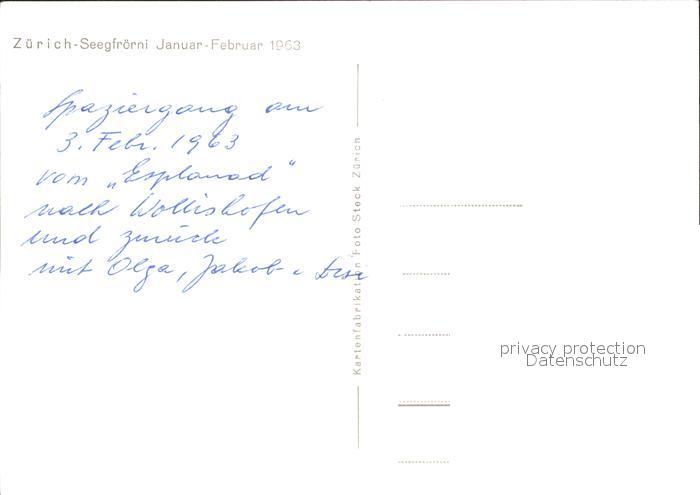 Zürich-Seegfrörni Januar-Februar 1963
Spaziergang am
3. Febr. 1963
vom „Esplanad"
nach Wollishofen
und zurück
mit Olga, Jakob u
Kartenfabrikation Foto Stock Zürich
privacy protection
Datenschutz